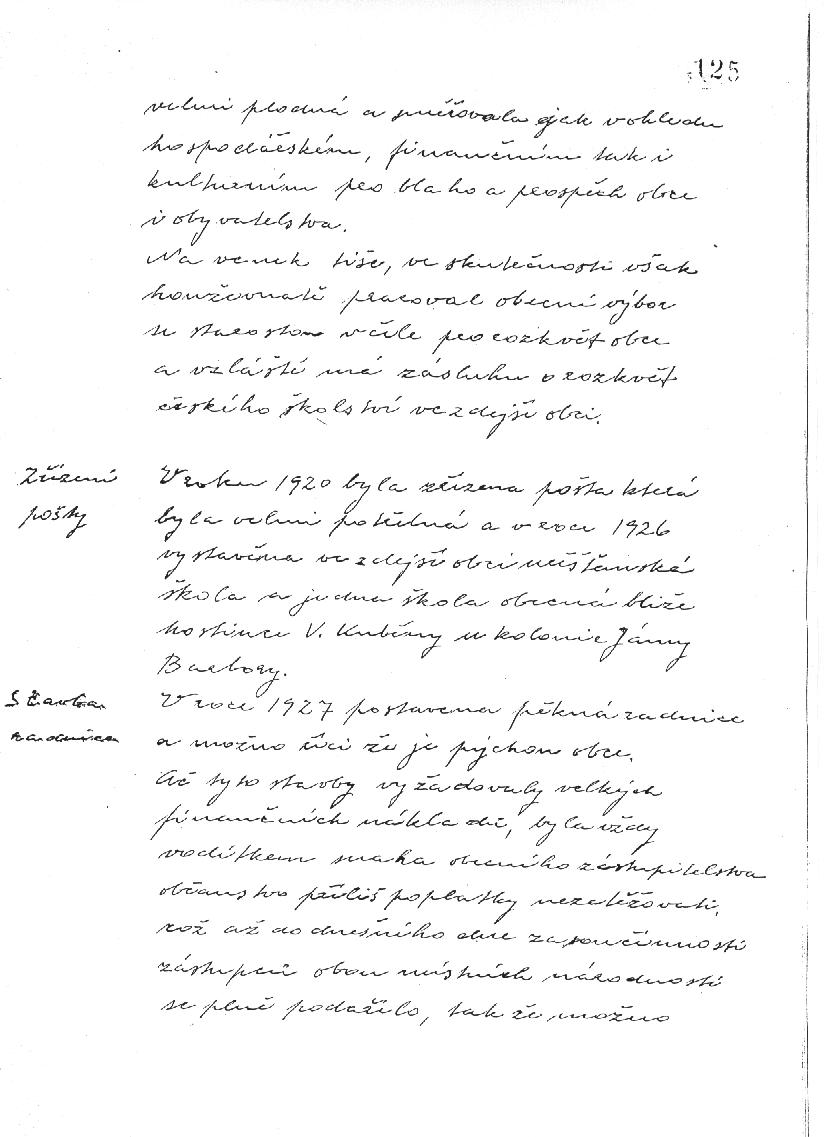 125
velmi plodná a směřovala jak v ohledu
hospodářském, finančním tak i
kulturním pro blaho a prospěch obce
i obyvatelstva.
Na venek tiše, ve skutečnosti však
houževnatě pracoval obecní výbor
se starostou v čele pro rozkvět obce
a vzláště má zásluhu o rozkvět
českého školství ve zdejší obci.
Zřízení
pošty
V roku 1920 byla zřízena pošta která
byla velmi potřebná a v roce 1926
vystavěna ve zdejší obci měšťanská
škola a jedna škola obecná blíže
hostince V. Kuběny u kolonie Jámy
Barbory.
Stavba
radnice
V roce 1927 postavena pěkná radnice
a možno říci že je pýchou obce.
Ač tyto stavby vyžadovaly velkých
finančních nákladů, byla vždy
vodítkem snaha obecního zastupitelstva
občanstvo příliš poplatky nezatěžovati,
což až do dnešního dne za součinnosti
zástupců obou místních národností
se plně podařilo, tak že možno